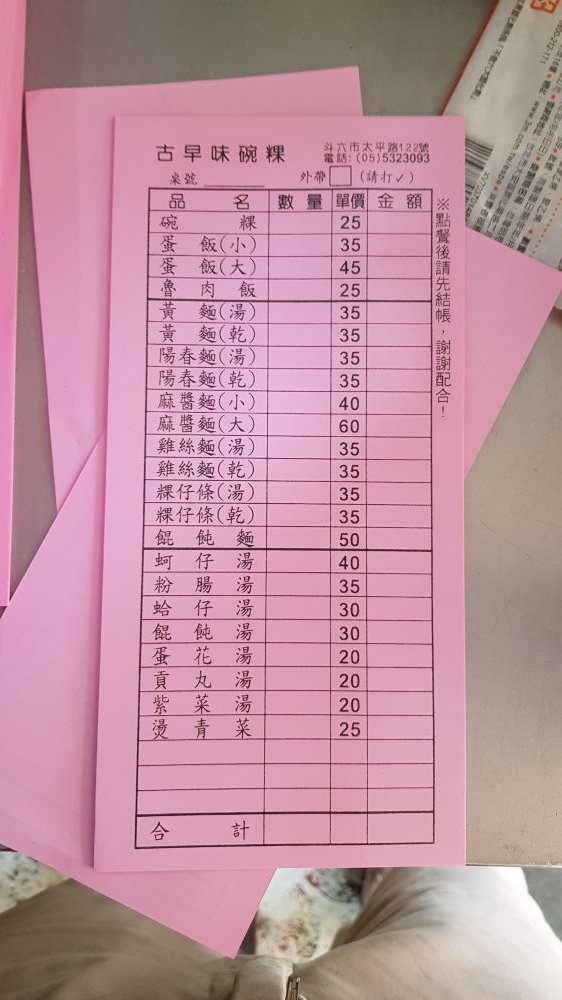 古早味碗粿
斗六市太平路122號
電話：(05)5323093
桌號
外帶 (請打✓)
品名 數量 單價 金額
碗粿 25
蛋飯(小) 35
蛋飯(大) 45
魯肉飯 25
黃麵(湯) 35
黃麵(乾) 35
陽春麵(湯) 35
陽春麵(乾) 35
麻醬麵(小) 40
麻醬麵(大) 60
雞絲麵(湯) 35
雞絲麵(乾) 35
粿仔條(湯) 35
粿仔條(乾) 35
餛飩麵 50
蚵仔湯 40
粉腸湯 35
蛤仔湯 30
餛飩湯 30
蛋花湯 20
貢丸湯 20
紫菜湯 20
燙青菜 25
合計
※點餐後請先結帳，謝謝配合！